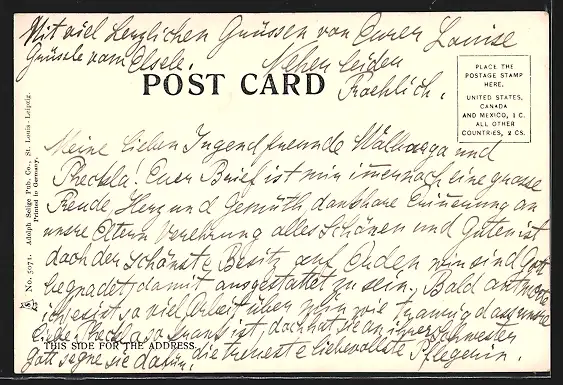 Mit viel herzlichen Grüssen von Eurer Louise
Grüssle vom Elsele. Neher leiden
Roehlich.
POST CARD
PLACE THE
POSTAGE STAMP
HERE.
UNITED STATES,
CANADA
AND MEXICO, 1 C.
ALL OTHER
COUNTRIES, 2 CS.
Meine lieben Jugendfreunde Walburga und
Theckla! Euer Brief ist mir immer noch eine grosse
Freude, Herz und Gemüth dankbare Erinnerung an
unsre Eltern Verehrung alles Schönen und Guten ist
doch der schönste Besitz auf Erden wir sind Gott
begnadet damit ausgestattet zu sein. Bald antworte
ich, es ist so viel Arbeit über mir wie traurig dass unsre
liebe Theckla so krank ist, doch hat sie an ihrer Schwester
Gott segne sie dafür, die treueste liebevollste Pflegerin.
THIS SIDE FOR THE ADDRESS.
No. 5071. Adolph Selige Pub. Co., St. Louis - Leipzig.
Printed in Germany.